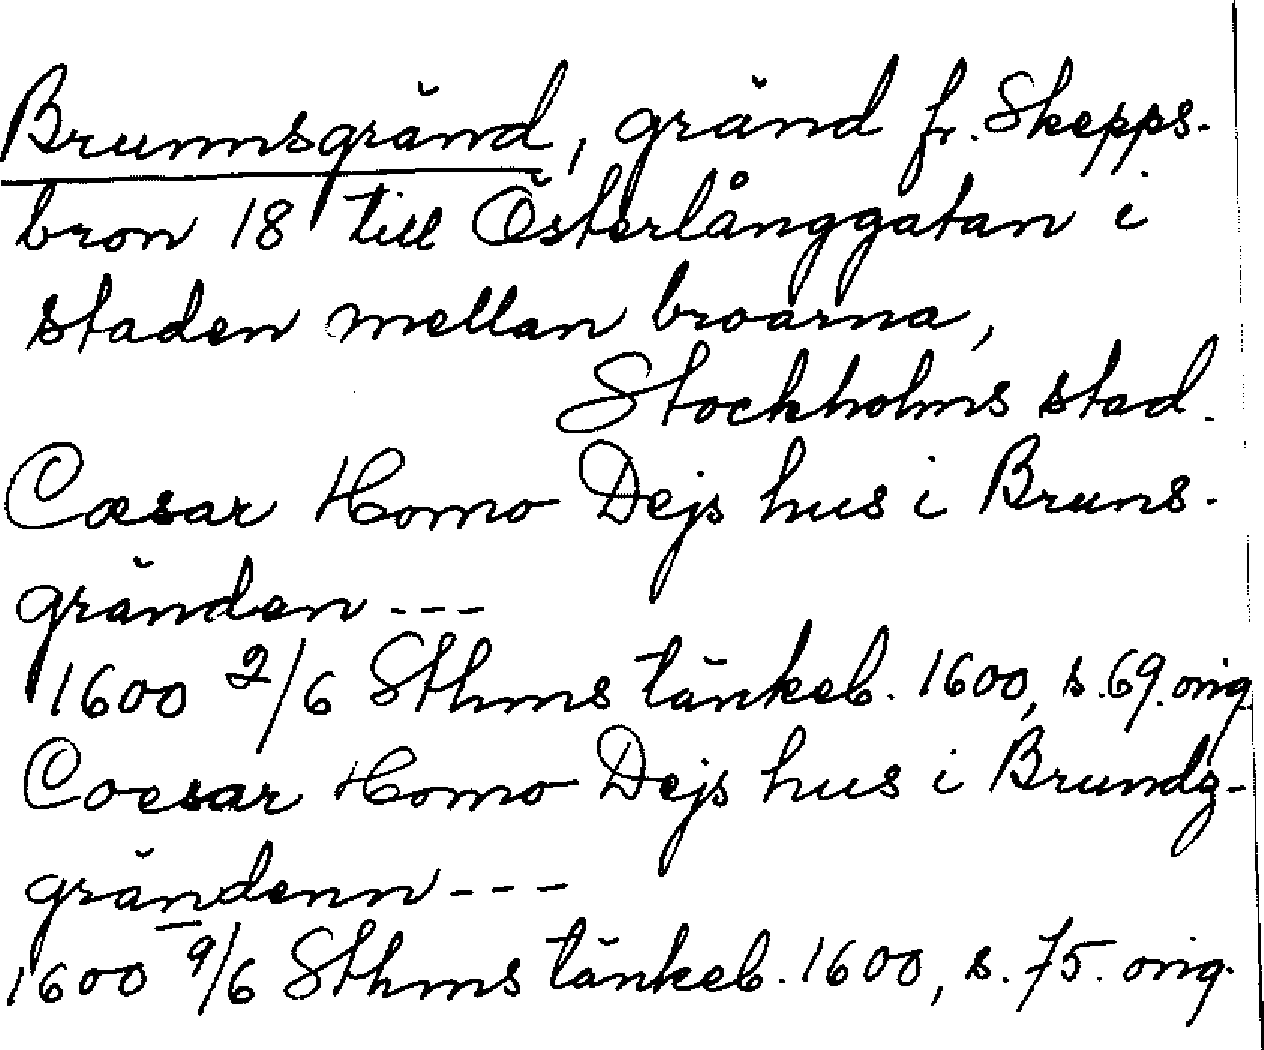 Brunnsgränd, gränd fr. Skepps-
bron 18 till Österlånggatan i
staden mellan broarna,
Stockholms stad.
Cæsar Homo Dejs hus i Bruns-
gränden ---
1600 2/6 Sthms tänkeb. 1600, s. 69. orig.
Coesar Homo Dejs hus i Brundz-
grändenn ---
1600 9/6 Sthms tänkeb. 1600, s. 75. orig.